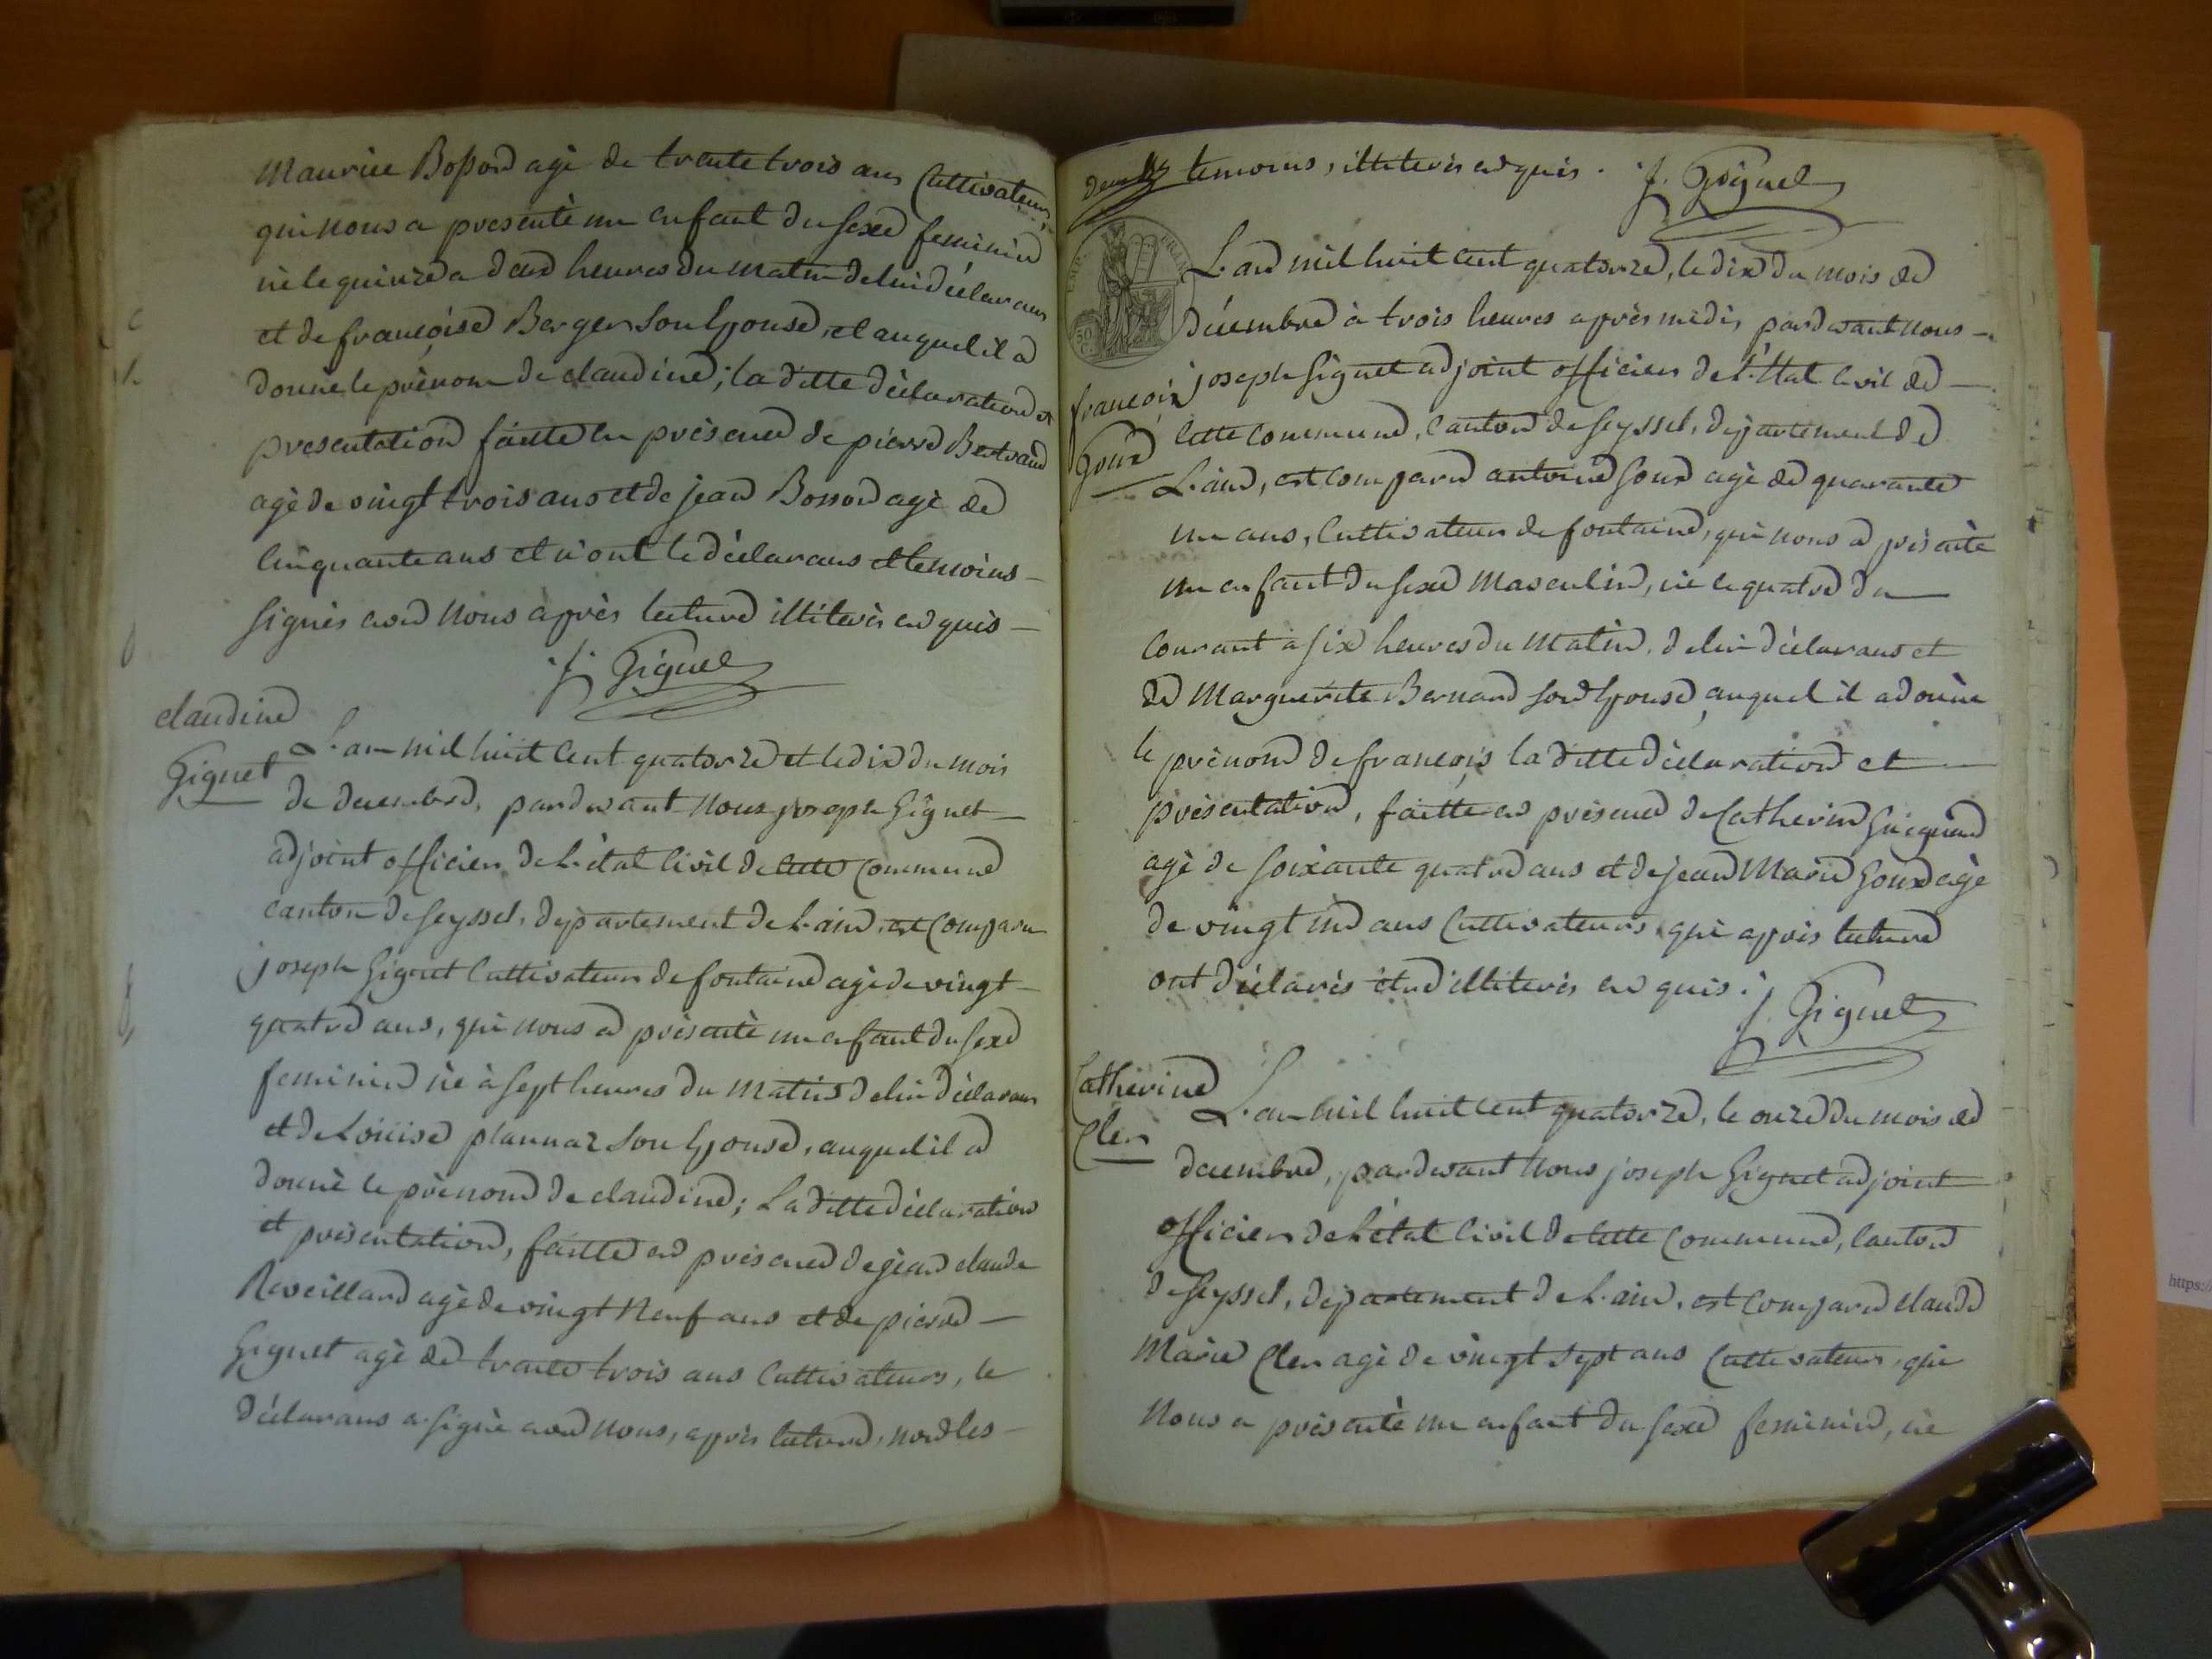 Maurice Bosson agé de trente trois ans Cultivateur,
qui nous a presenté un enfant du sexe feminin
né le quinze a deux heures du matin de lui déclarans
et de françoise Berger son Epouse, et auquel il a
donné le prénom de claudine; la ditte déclaration et
presentation faitte en présence de pierre Bertrand
agé de vingt trois ans et de jean Bosson agé de
Cinquante ans et n'ont le déclarans et temoins
signés avec nous après lecture illiterés enquis
j. Giguet
claudine
Giguet
L'an mil huit Cent quatorze et le dix du mois
de decembre, pardevant nous joseph Giguet
adjoint officier de l'état Civil de cette Commune
canton de Seyssel, département de l'ain, est Comparu
joseph Giguet Cultivateur de fontaine agé de vingt
quatre ans, qui nous a présenté un enfant du sexe
feminin né à sept heures du matin de lui déclarans
et de Louise plannaz son Epouse, auquel il a
donné le prénom de claudine; La ditte déclaration
et présentation, faitte en présence de jean claude
Reveillard agé de vingt Neuf ans et de pierre
Giguet agé de trente trois ans Cultivateurs, le
déclarans a signé avec nous, après lecture, non les
temoins, illiterés enquis. j. Giguet
L'an mil huit Cent quatorze, le dix du mois de
décembre à trois heures après midi, pardevant nous
françois
Goux
joseph Giguet adjoint officier de l'Etat Civil de
cette Commune, Canton de Seyssel, département de
L'ain, est Comparu antoine Goux agé de quarante
un ans, Cultivateur de fontaine, qui nous a présenté
un enfant du sexe Masculin, né le quatre du
Courant à six heures du Matin, de lui déclarans et
de Marguerite Bernard son Epouse, auquel il a donné
le prénom de françois la ditte déclaration et
présentation, faitte en présence de Catherin
agé de soixante quatre ans et de jean Marie Goux agé
de vingt un ans Cultivateurs qui après lecture
ont déclarés être illiterés enquis. j. Giguet
Catherine
Cler
L'an mil huit cent quatorze, le onze du mois de
decembre, pardevant Nous joseph Giguet adjoint
officier de l'état Civil de cette Commune, Canton
de Seyssel, département de L'ain, est Comparu claude
Marie Cler agé de vingt sept ans Cultivateur, qui
Nous a présenté un enfant du sexe feminin, né
https:/